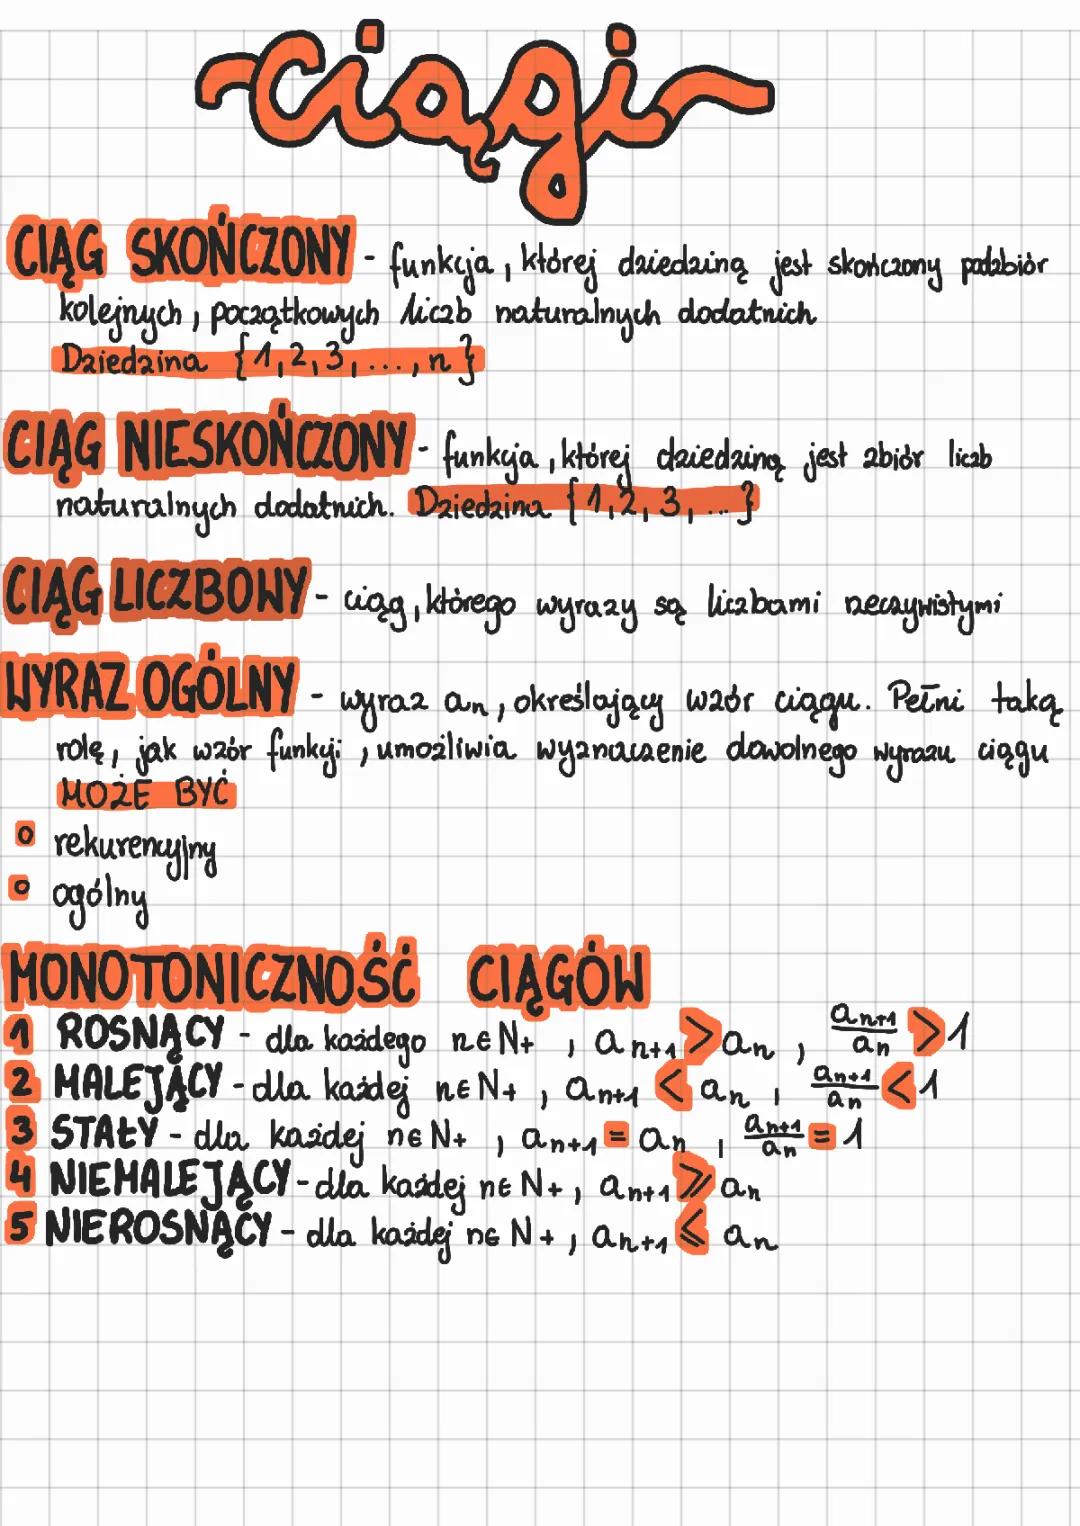 ciągi
CIĄG SKOŃCZONY - funkcja, której dziedziną jest skończony podzbiór
kolejnych, początkowych liczb naturalnych dodatnich
Dziedzina {1,2,3,...,n}
CIĄG NIESKOŃCZONY - funkcja, której dziedziną jest zbiór liczb
naturalnych dodatnich. Dziedzina {1,2,3,...}
CIĄG LICZBOWY - ciąg, którego wyrazy są liczbami rzeczywistymi
WYRAZ OGÓLNY - wyraz an, określający wzór ciągu. Pełni taką
rolę, jak wzór funkcji, umożliwia wyznaczenie dowolnego wyrazu ciągu
MOŻE BYĆ
o rekurencyjny
o ogólny
MONOTONICZNOŚĆ CIĄGÓW
1 ROSNĄCY - dla każdego n∈N+, an+1 > an, an+1/an > 1
2 MALEJĄCY - dla każdej n∈N+, an+1 < an, an+1/an < 1
3 STAŁY - dla każdej n∈N+, an+1 = an, an+1/an = 1
4 NIEMALEJĄCY - dla każdej n∈N+, an+1 ⩾ an
5 NIEROSNĄCY - dla każdej n∈N+, an+1 ⩽ an